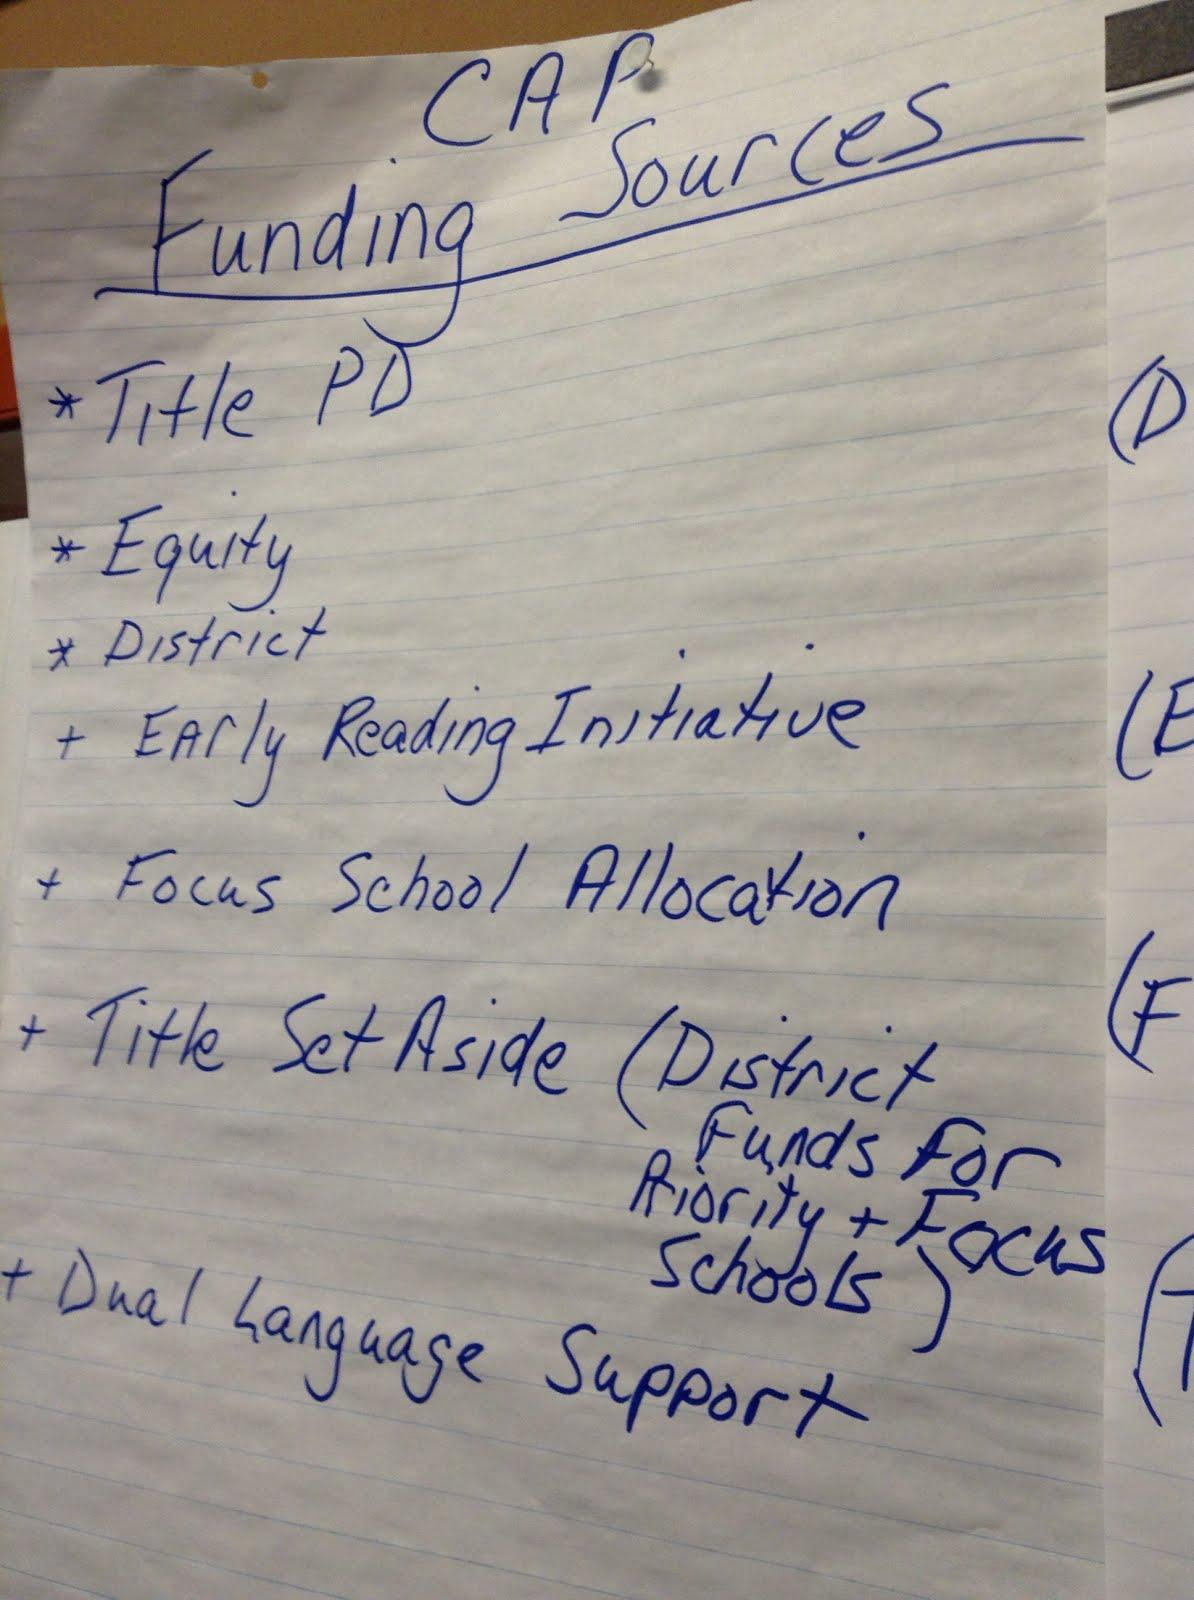 CAP
Funding Sources
* Title PD
* Equity
* District
+ EArly Reading Initiative
+ Focus School Allocation
+ Title Set Aside (District
Funds For
Priority + Focus
Schools)
+ Dual Language Support
(D
(E
(F